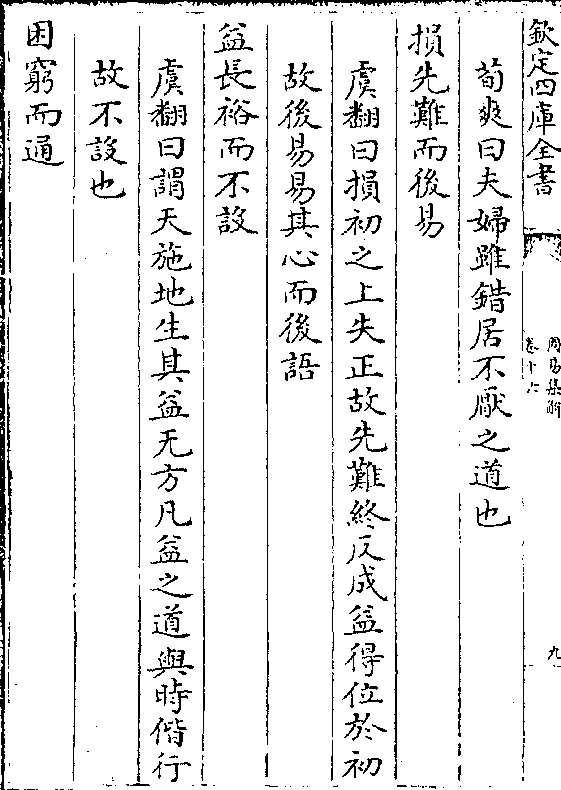 欽定四庫全書
周易集解
卷十六
九
荀爽曰夫婦雖錯居不厭之道也
損先難而後易
虞翻曰損初之上失正故先難終反成益得位於初
故後易易其心而後語
益長裕而不設
虞翻曰謂天施地生其益无方凡益之道與時偕行
故不設也
困窮而通